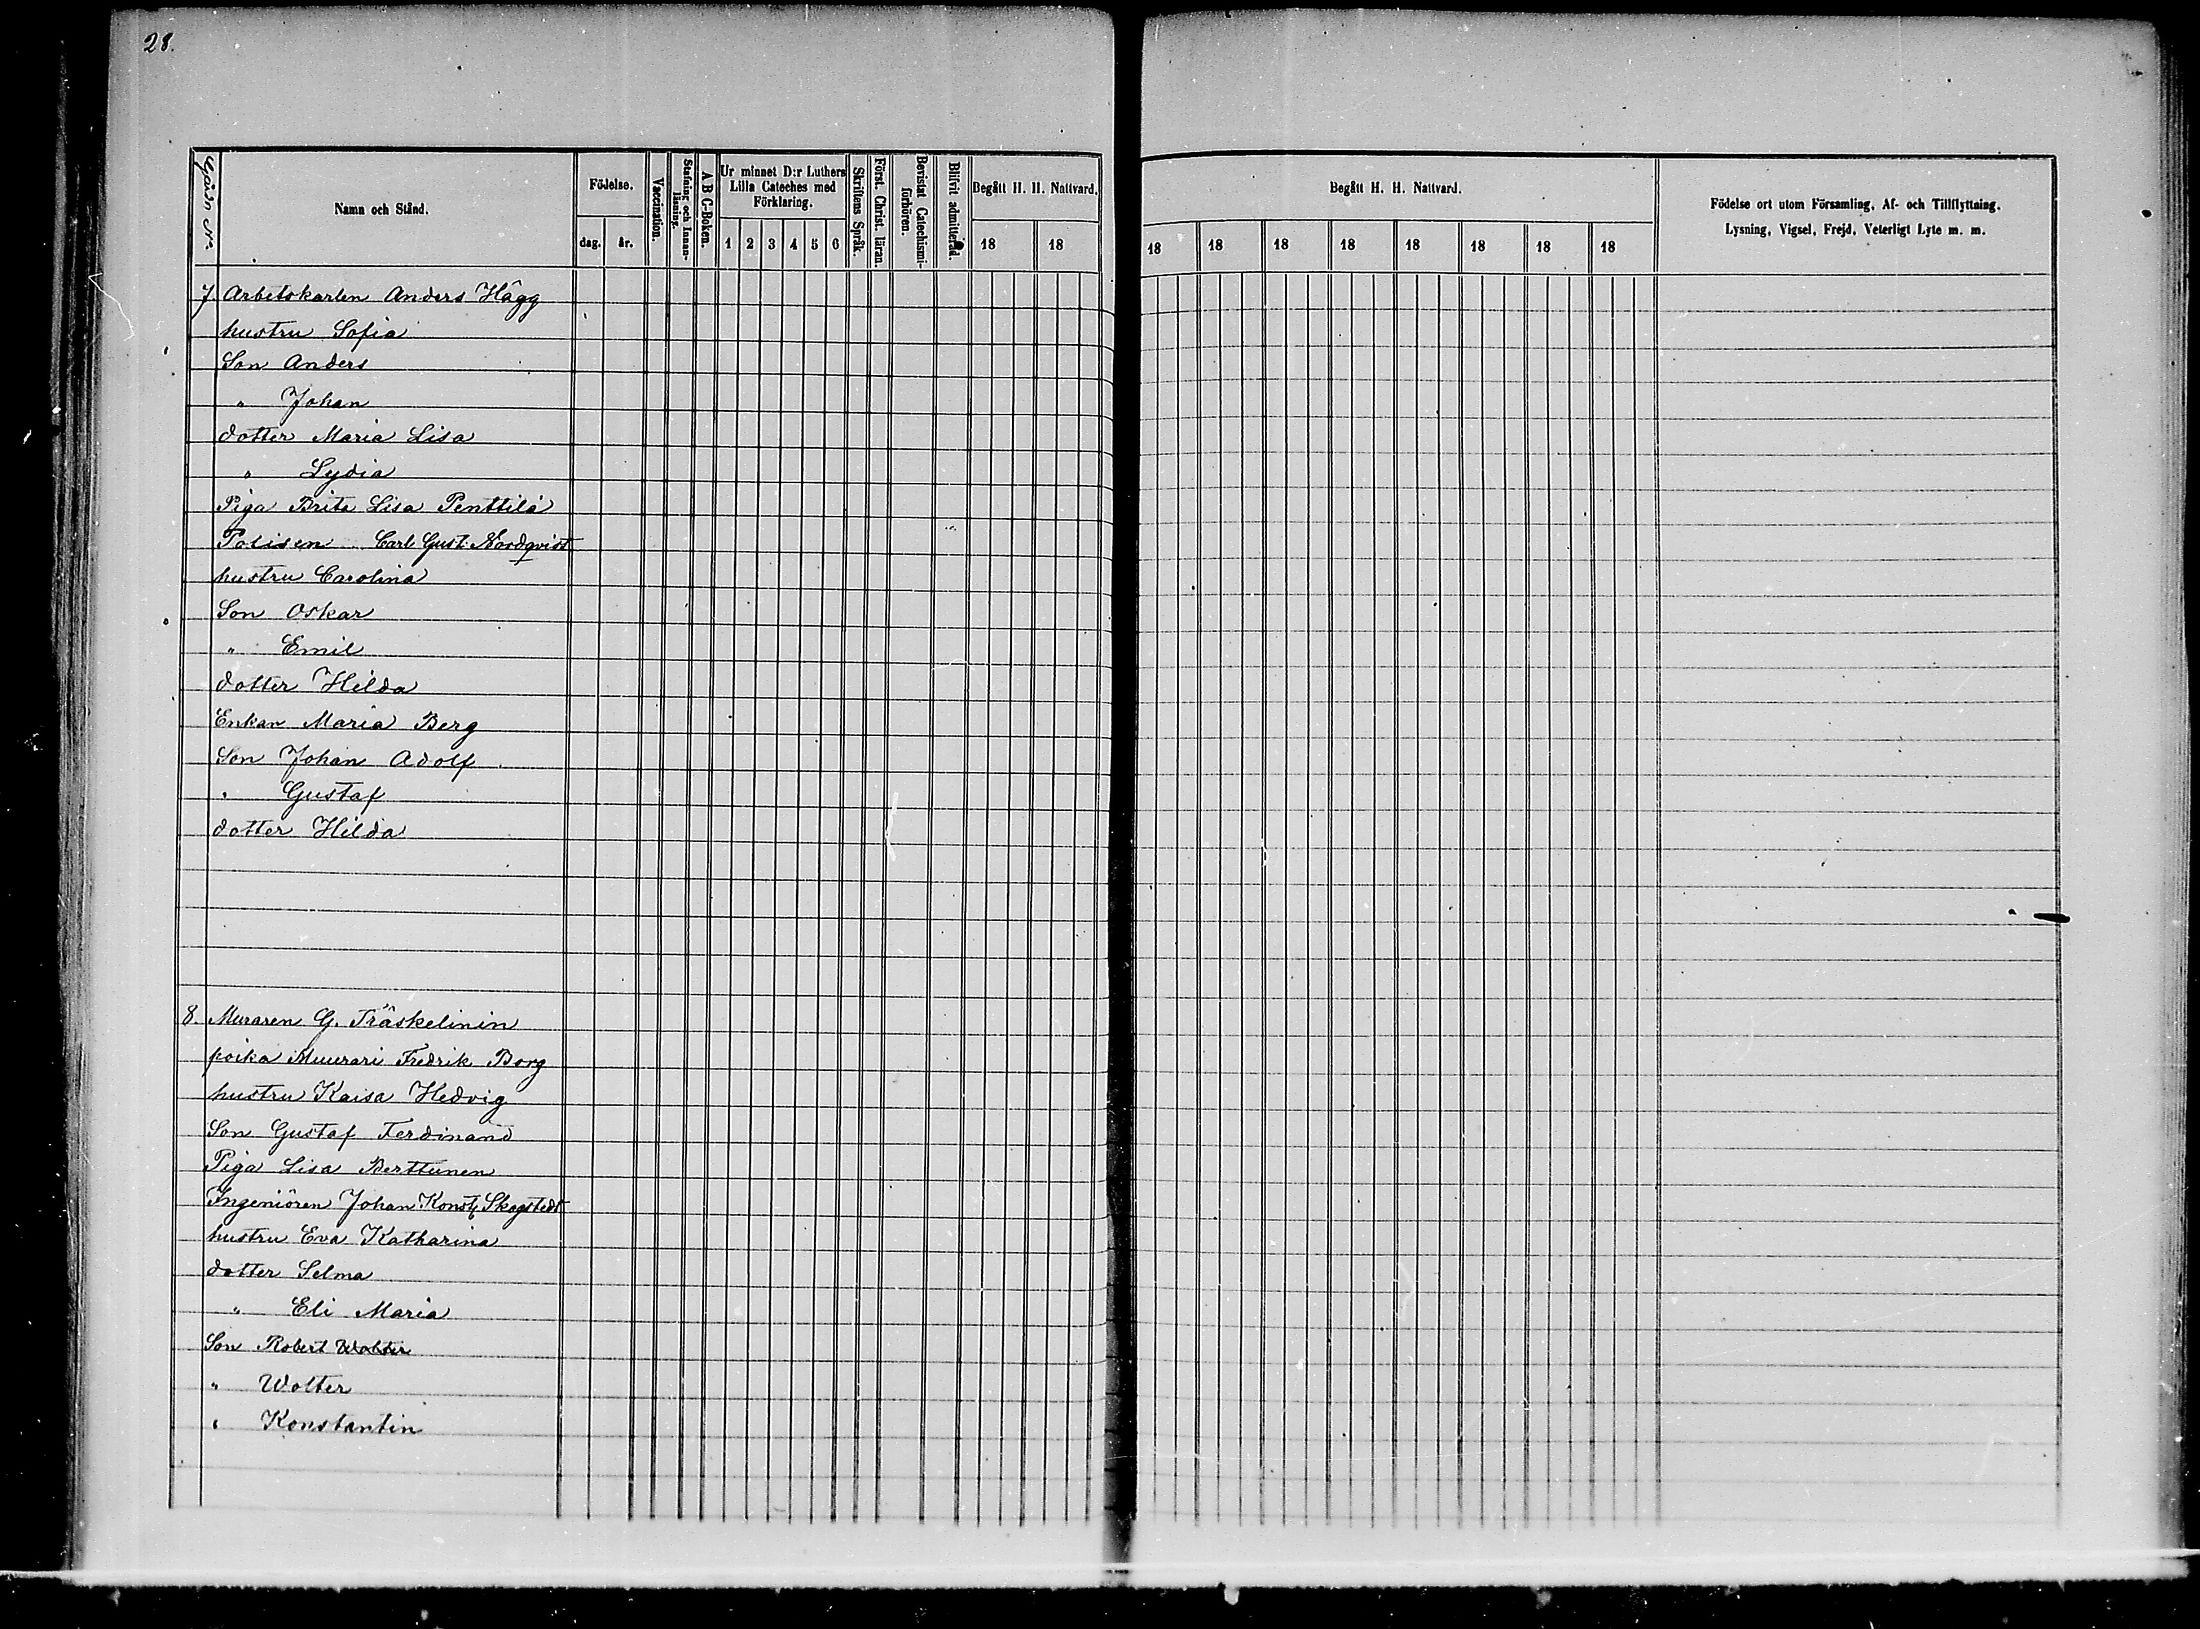 28.
Gård No.
Namn och Stånd.
Födelse.
dag.
år.
Vaccination.
Stafning och Innan-
läsning.
A B C-Boken.
Ur minnet D:r Luthers
Lilla Cateches med
Förklaring.
1 2 3 4 5 6
Skriftens Språk.
Först. Christ. läran.
Bevistat Catechismi-
förhören.
Blifvit admitterad.
Begått H. H. Nattvard.
18 18
Begått H. H. Nattvard.
18 18 18 18 18 18 18 18
Födelse ort utom Församling, Af- och Tillflyttning,
Lysning, Vigsel, Frejd, Veterligt Lyte m. m.
7 Arbetskarlen Anders Hägg
hustru Sofia
Son Anders
" Johan
dotter Maria Lisa
" Lydia
Piga Brita Lisa Penttilä
Polisen Carl Gust. Nordqvist
hustru Carolina
Son Oskar
" Emil
dotter Hilda
Enkan Maria Berg
Son Johan Adolf
" Gustaf
dotter Hilda
8. Muraren G. Träskelinin
poika Muurari Fredrik Borg
hustru Kaisa Hedvig
Son Gustaf Ferdinand
Piga Lisa Berttunen
Ingeniören Johan Konst Skogstedt
hustru Eva Katharina
dotter Selma
" Eli Maria
Son Robert Wolter
" Wolter
" Konstantin